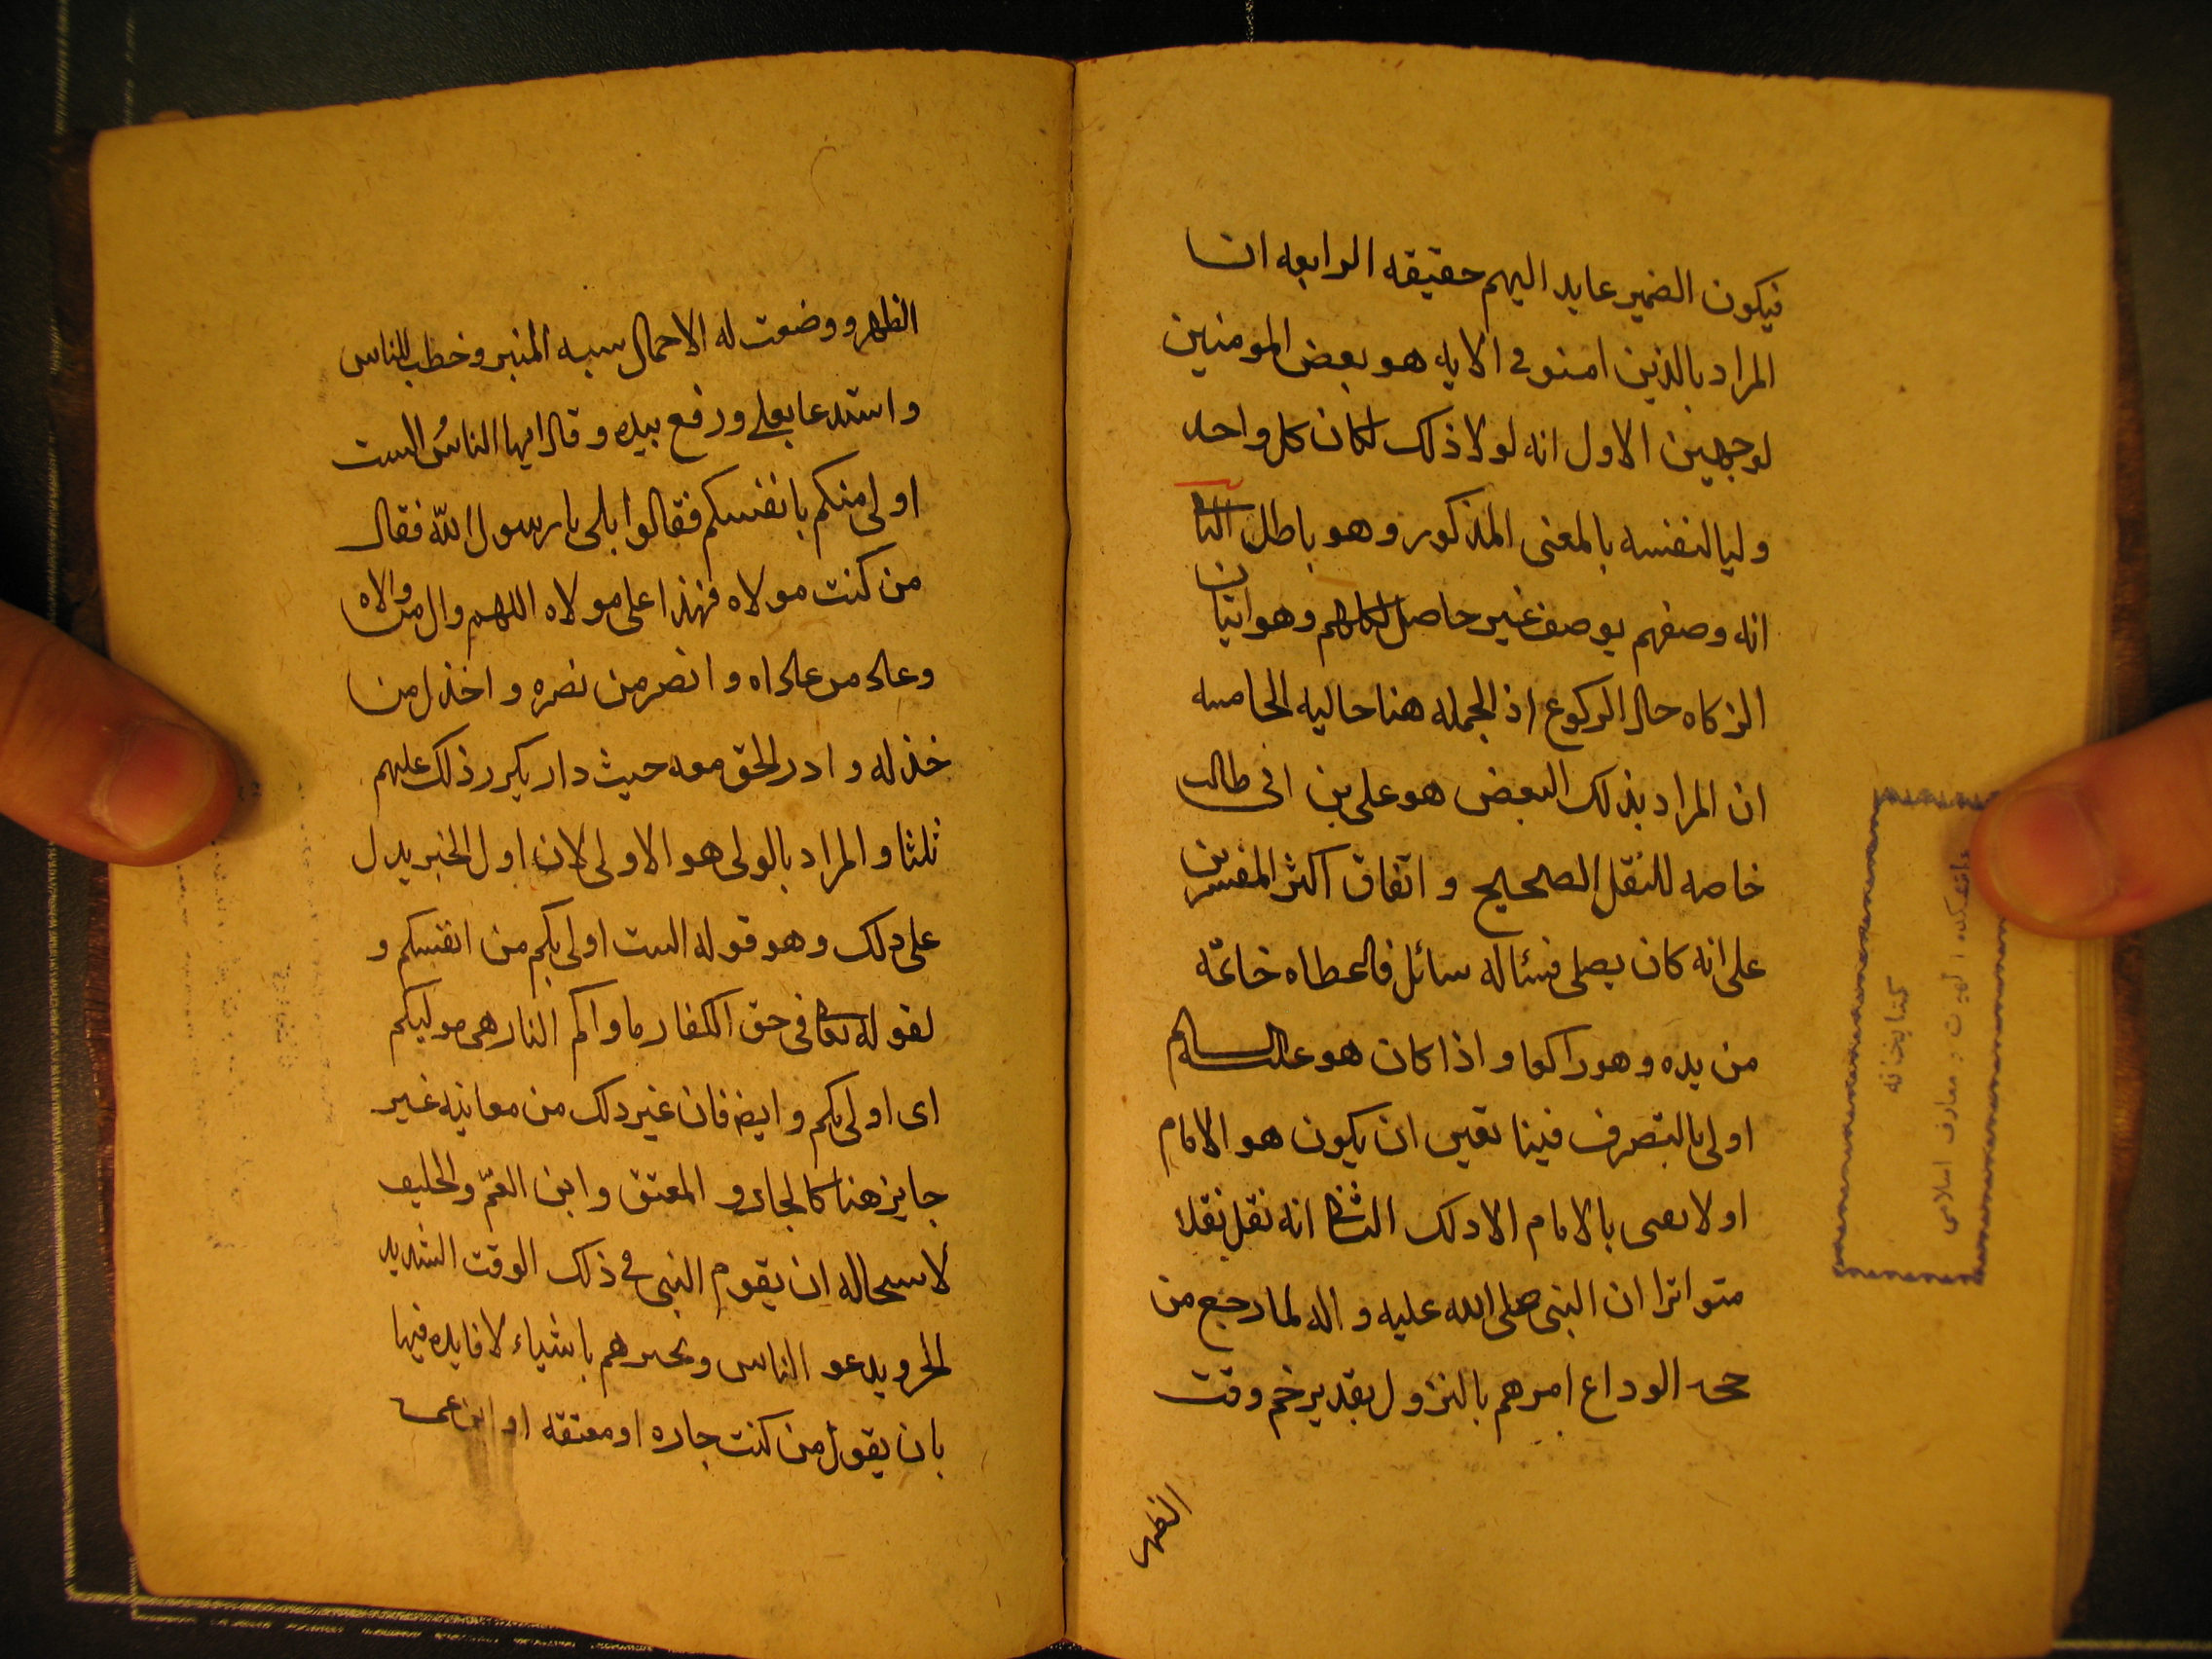 فيكون الضمير عايد اليهم حقيقه الرابعه ان
المراد بالذين امنو في الايه هو بعض المومنين
لوجهين الاول انه لولا ذلك لكان كل واحد
وليا لنفسه بالمعنى المذكور وهو باطل الثا
انه وصفهم بوصف غير حاصل لكلهم وهو اتيان
الزكاه حال الركوع اذ الجمله هنا حاليه الخامسه
ان المراد بذلك البعض هو علي بن ابى طالب
خاصه للنقل الصحيح و اتفاق اكثر المفسرين
على انه كان يصلى فسئاله سائل فاعطاه خاتمه
من يده وهو راكعا و اذا كان هو عليه السلم
اولى بالتصرف فينا تعين ان يكون هو الامام
او لا نعنى بالامام الا ذلك الثا انه نقل نقلا
متواترا ان النبى صلى الله عليه و اله لما رجع من
حجه الوداع امرهم بالنزول بغدير خم وقت
الظهر
الظهر و وضعت له الاحمال سبه المنبر و خطب للناس
و استدعا بعلي و رفع بيده و قال ايها الناسُ الست
اولى منكم بانفسكم فقالوا بلى يا رسول اللّه فقال
من كنت مولاه فهذا على مولاه اللهم وال من والاه
وعاد من عاداه و انصر من نصره و اخذل من
خذله و ادر الحق معه حيث دار يكرر ذلك عليهم
ثلثا و المراد بالولى هو الاولى لان اول الخبر يدل
على دلك وهو قوله الست اولى بكم من انفسكم و
لقوله تعا فى حق الكفار ماواكم النار هى موليكم
اى اولى بكم و ايضا فان غير دلك من معانيه غير
جايز هنا كالجار و المعتق و ابن العمّ و الحليف
لاسحاله ان يقوم النبى في ذلك الوقت الشديد
الحر و يدعو الناس و يخبرهم باشياء لا فايده فيها
بان يقول من كنت جاره او معتقه او ابن عمه
كتابخانه
دانشکده الهیات و معارف اسلامی